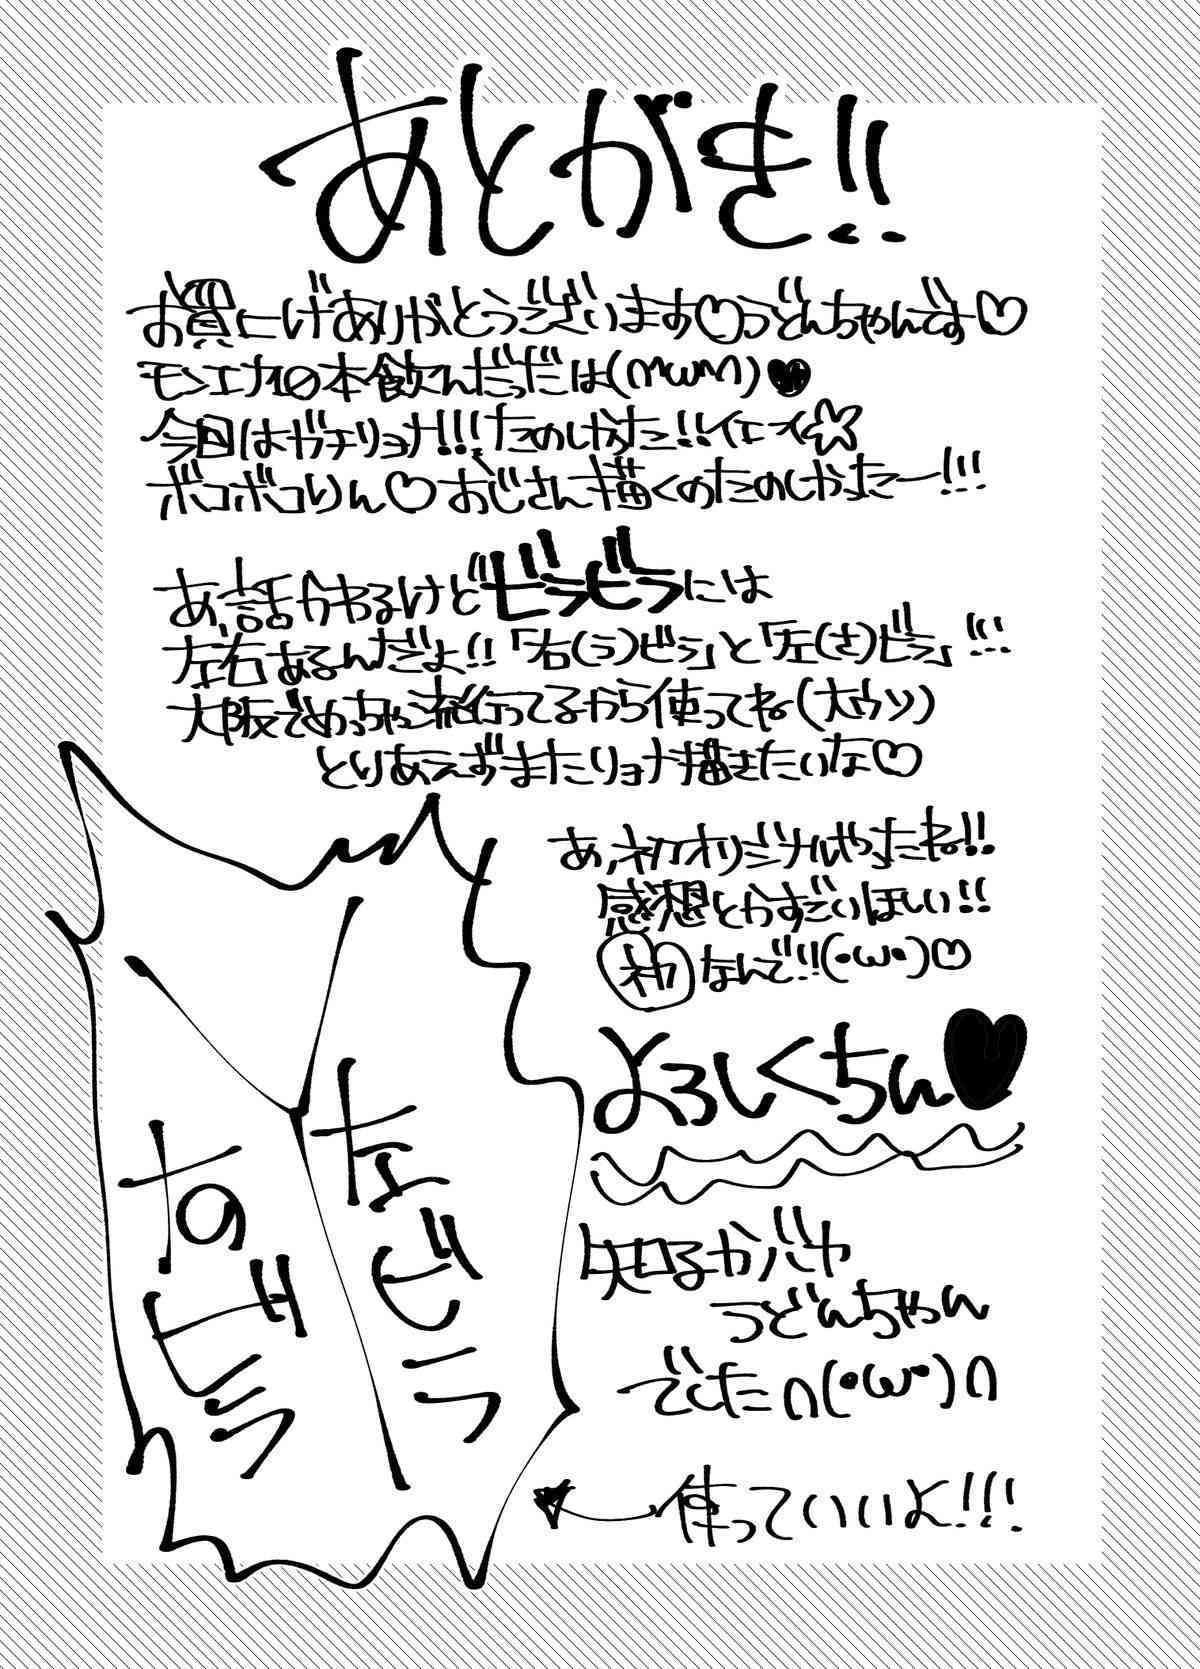 あとがき!!
お買にげありがとうございます♡うどんちゃんです♡
モンエナ10本飲んだっだは(mωm)♥
今回はガチリョナ!!!たのしかった!!イエーイ☆
ボコボコりん♡おじさん描くのたのしかったー!!!
あ、話かわるけどビラビラには
左右あるんだよ!!「右(う)ビラ」と「左(さ)ビラ」!!!
大阪でめっちゃ流行ってるから使ってね(大ウソ)
とりあえずまたリョナ描きたいな♡
あ、初オリジナルやったね!!
感想とかすごいほしい!!
初なんで!!(・ω・)♡
よろしくちん♥
知るかバカ
うどんちゃん
でした∩(・ω・)∩
←使っていいよ!!!
左ビラ
右ビラ